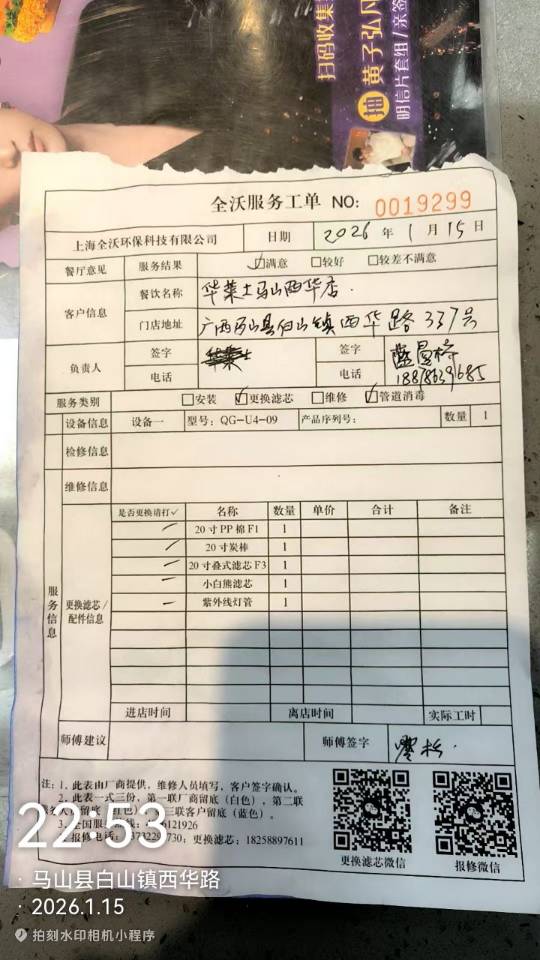 扫码收集
抽 黄子弘凡
明信片套组/亲签
全沃服务工单 NO: 0019299
上海全沃环保科技有限公司 日期 2026 年 1 月 15 日
餐厅意见 服务结果 ☑满意 □较好 □较差不满意
客户信息 餐饮名称 华莱士马山西华店.
门店地址 广西马山县白山镇西华路337号
负责人 签字 华莱士 签字
电话 电话
服务类别 □安装 ☑更换滤芯 □维修 ☑管道消毒
设备信息 设备一 型号: QG-U4-09 产品序列号: 数量 1
检修信息
维修信息
服务信息 更换滤芯/配件信息
是否更换请打✓ 名称 数量 单价 合计 备注
20寸PP棉F1 1
20寸炭棒 1
20寸叠式滤芯F3 1
小白熊滤芯 1
紫外线灯管 1
进店时间 离店时间 实际工时
师傅建议 师傅签字
注: 1, 此表由厂商提供, 维修人员填写, 客户签字确认。
2, 此表一式三份, 第一联厂商留底（白色）, 第二联
三联客户留底（蓝色）。
3, 全国服务 121926
报修电话: 730; 更换滤芯: 18258897611
更换滤芯微信 报修微信
22:53
马山县白山镇西华路
2026.1.15
拍刻水印相机小程序